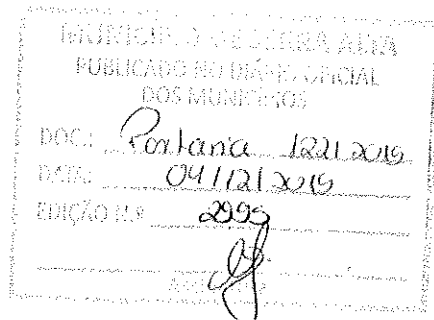 MUNICÍPIO DE SERRA ALTA
PUBLICADO NO DIÁRIO OFICIAL
DOS MUNICÍPIOS
DOC.: Portaria 122/2019
DATA: 04/12/2019
EDIÇÃO N.º 2995